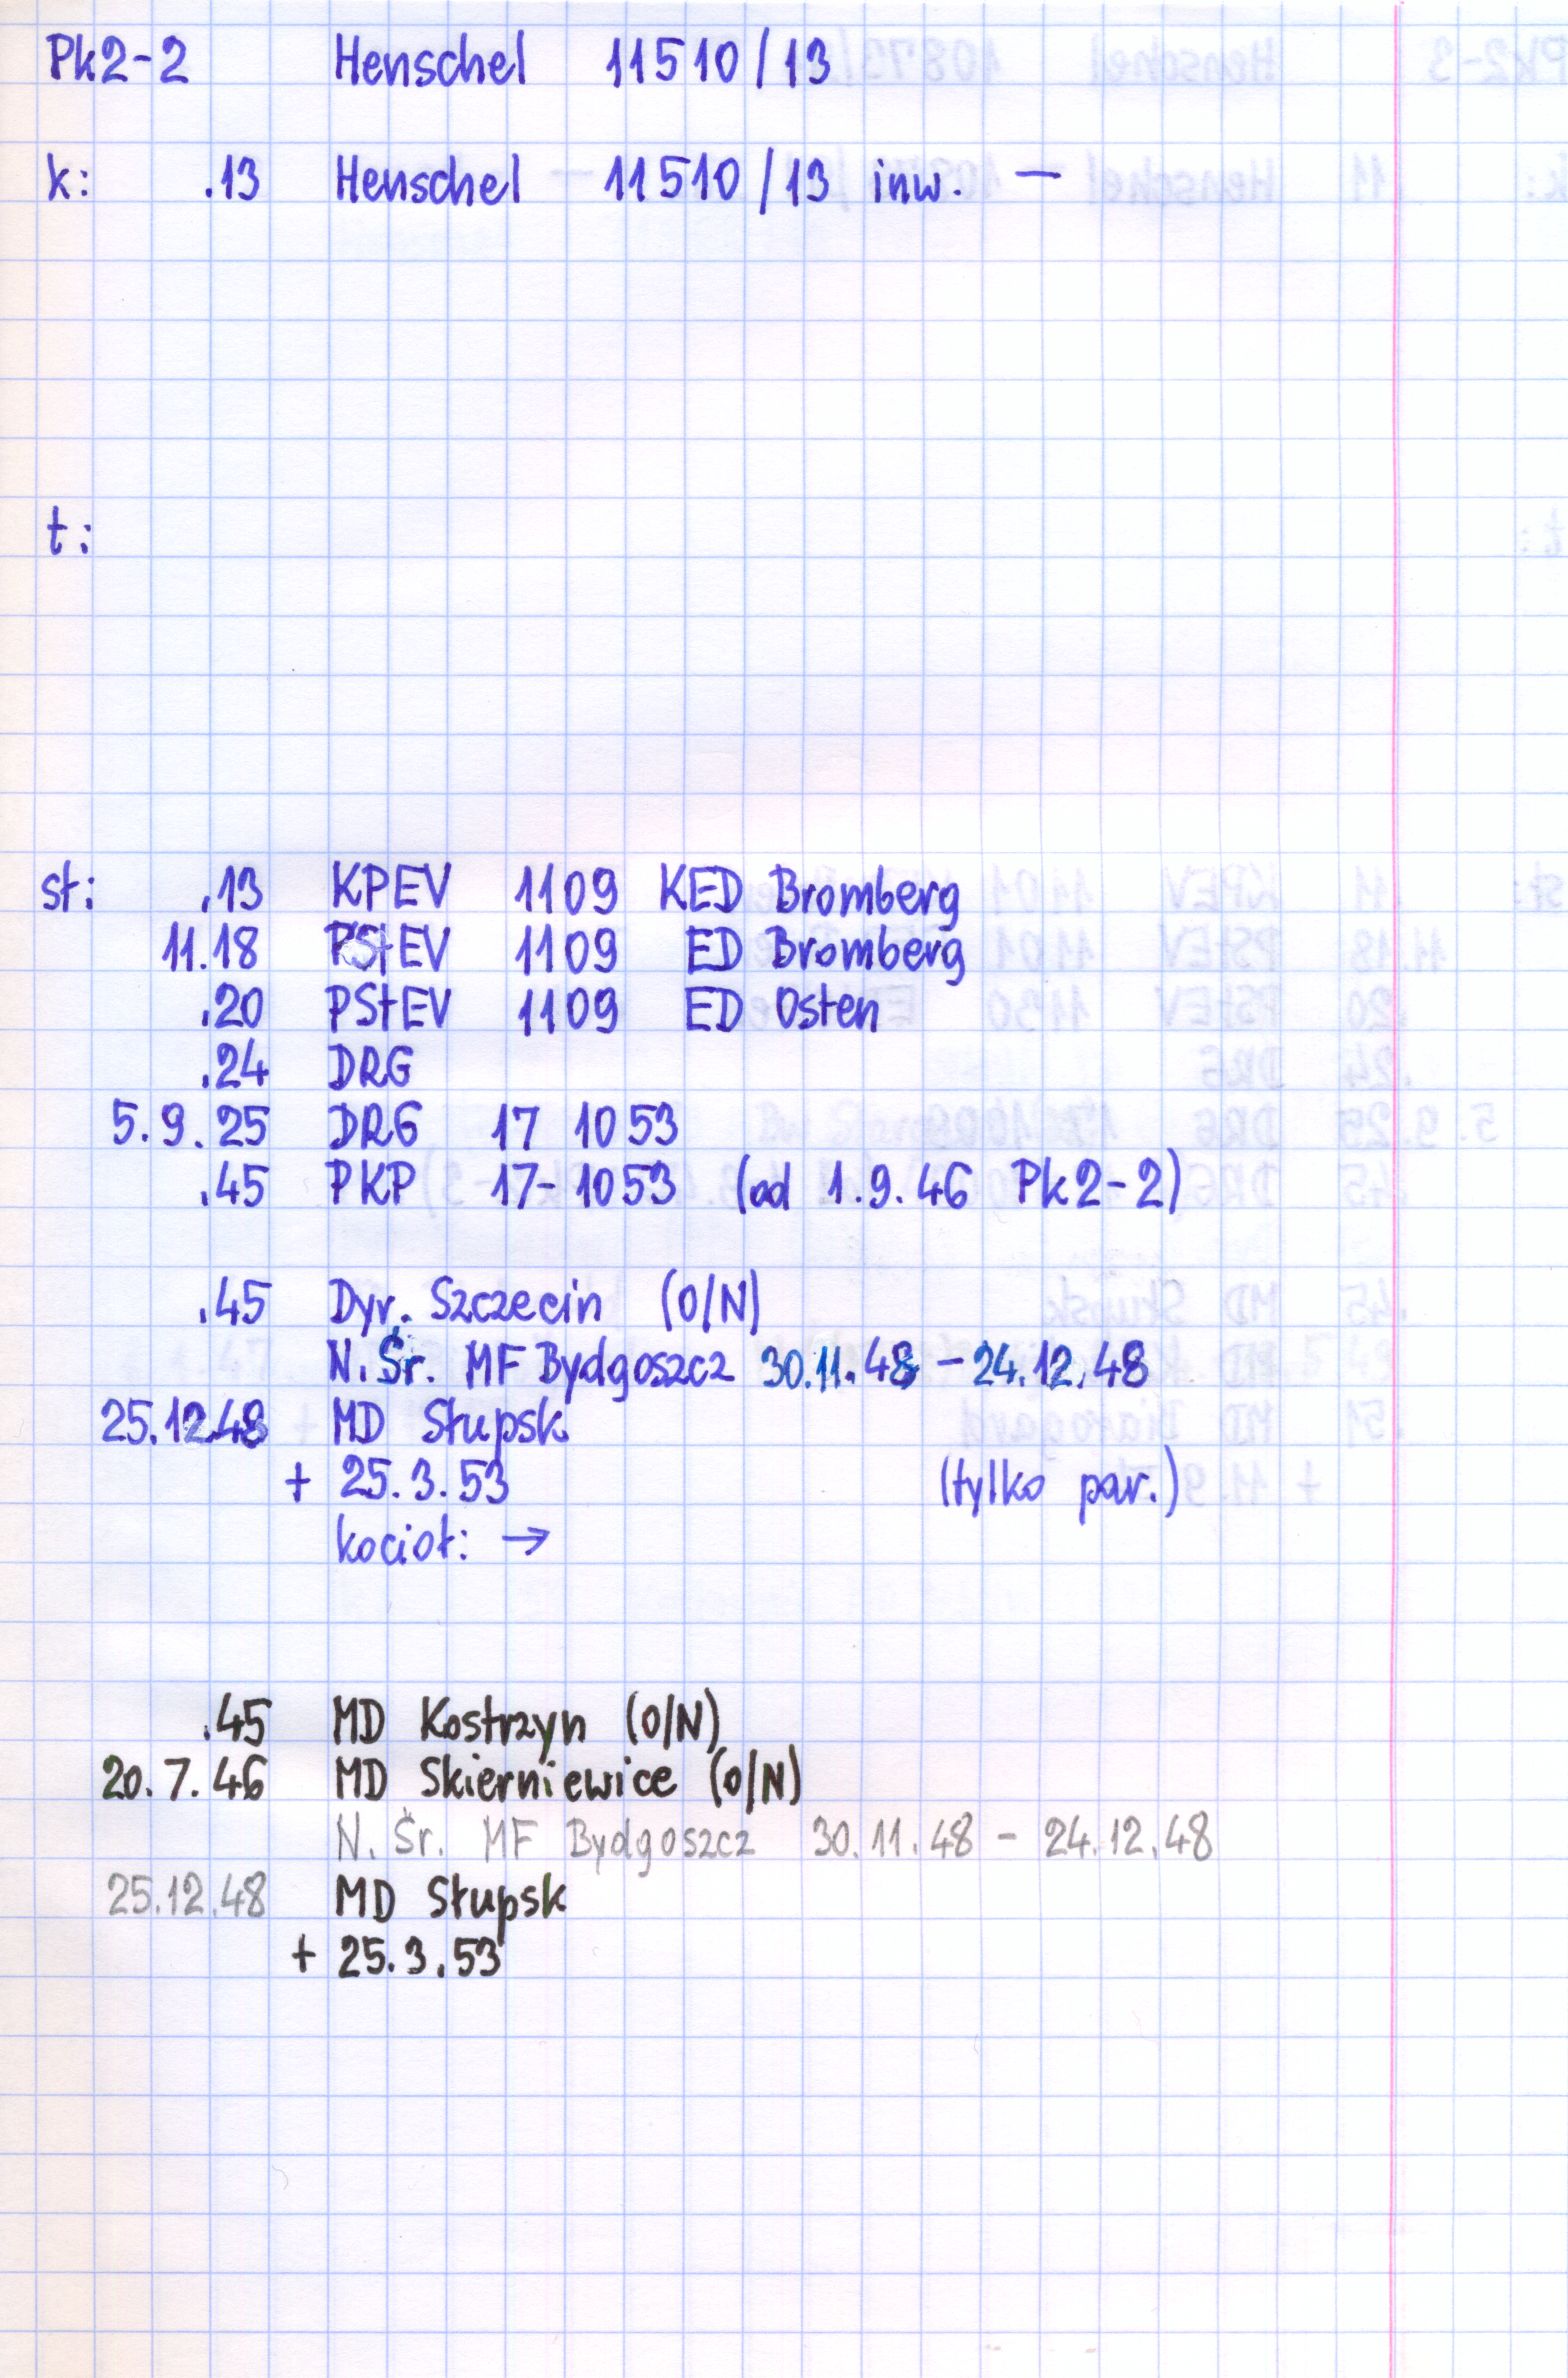 Pk2-2 Henschel 11510/13
k: .13 Henschel 11510/13 inw. —
t:
st: .13 KPEV 1109 KED Bromberg
11.18 PStEV 1109 ED Bromberg
.20 PStEV 1109 ED Osten
.24 DRG
5.9.25 DRG 17 1053
.45 PKP 17-1053 (od 1.9.46 Pk2-2)
.45 Dyr. Szczecin (O/N)
N.Śr. MF Bydgoszcz 30.11.48 - 24.12.48
25.12.48 MD Słupsk
+ 25.3.53 (tylko par.)
kocioł: →
.45 MD Kostrzyn (O/N)
20.7.46 MD Skierniewice (O/N)
N. Śr. MF Bydgoszcz 30.11.48 - 24.12.48
25.12.48 MD Słupsk
+ 25.3.53